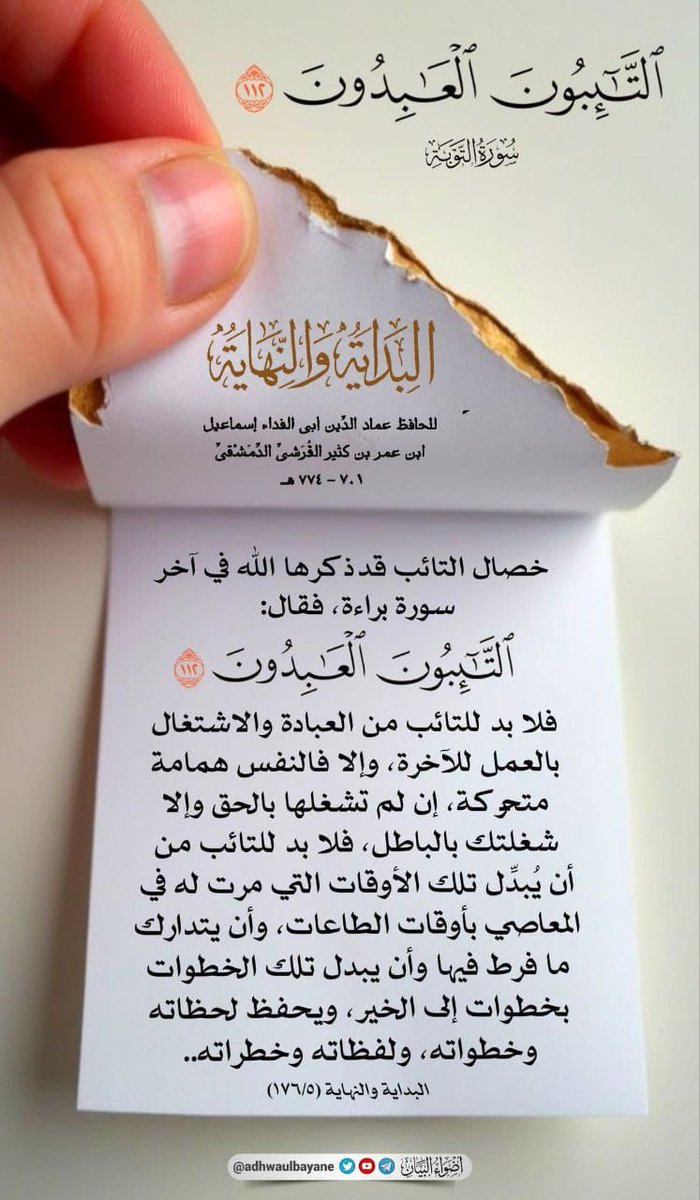 ٱلتَّـٰٓئِبُونَ ٱلْعَـٰبِدُونَ ١١٢
سُورَةُ التَّوْبَةِ
البِدَايَةُ وَالنِّهَايَةُ
للحافظ عماد الدِّين أبي الفداء إسماعيل
ابن عمر بن كثير القُرَشيِّ الدِّمَشْقيِّ
٧٠١ – ٧٧٤ هـ
خصال التائب قد ذكرها الله في آخر
سورة براءة، فقال:
ٱلتَّـٰٓئِبُونَ ٱلْعَـٰبِدُونَ ١١٢
فلا بد للتائب من العبادة والاشتغال
بالعمل للآخرة، وإلا فالنفس همامة
متحركة، إن لم تشغلها بالحق وإلا
شغلتك بالباطل، فلا بد للتائب من
أن يُبدِّل تلك الأوقات التي مرت له في
المعاصي بأوقات الطاعات، وأن يتدارك
ما فرط فيها وأن يبدل تلك الخطوات
بخطوات إلى الخير، ويحفظ لحظاته
وخطواته، ولفظاته وخطراته..
البداية والنهاية (١٧٦/٥)
@adhwaulbayane أضواء البيان